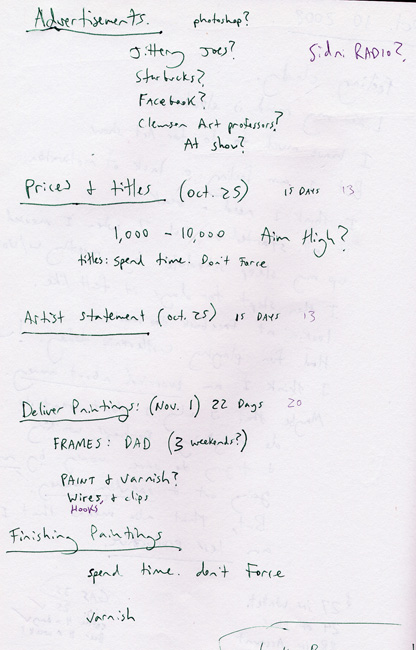 Advertisements. photoshop?
Jittery Joes? Sidni RADIO?
Starbucks?
Facebook?
Clemson Art professors?
At show?
Prices & titles (Oct. 25) 15 DAYS 13
1,000 - 10,000 Aim High?
titles: spend time. Don't Force
Artist statement (Oct. 25) 15 DAYS 13
Deliver Paintings: (Nov. 1) 22 Days 20
FRAMES: DAD (3 weekends?)
PAINT & varnish?
Wires, & clips
HOOKS
Finishing Paintings
spend time. don't Force
varnish